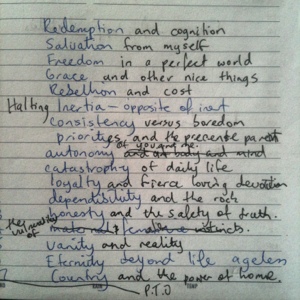 Redemption and cognition
Salvation from myself
Freedom in a perfect world
Grace and other nice things
Rebellion and cost
Halting Inertia – opposite of
Consistency versus boredom
priorities, and the
of you and me.
autonomy and at body and mind
catastrophy of daily life
loyalty and fierce loving devotion
dependibility and the rock
honesty and the safety of truth.
the vulnerability of maternal & instincts.
Vanity and reality
Eternity beyond life ageless
Country and the power of home.
P.T.O